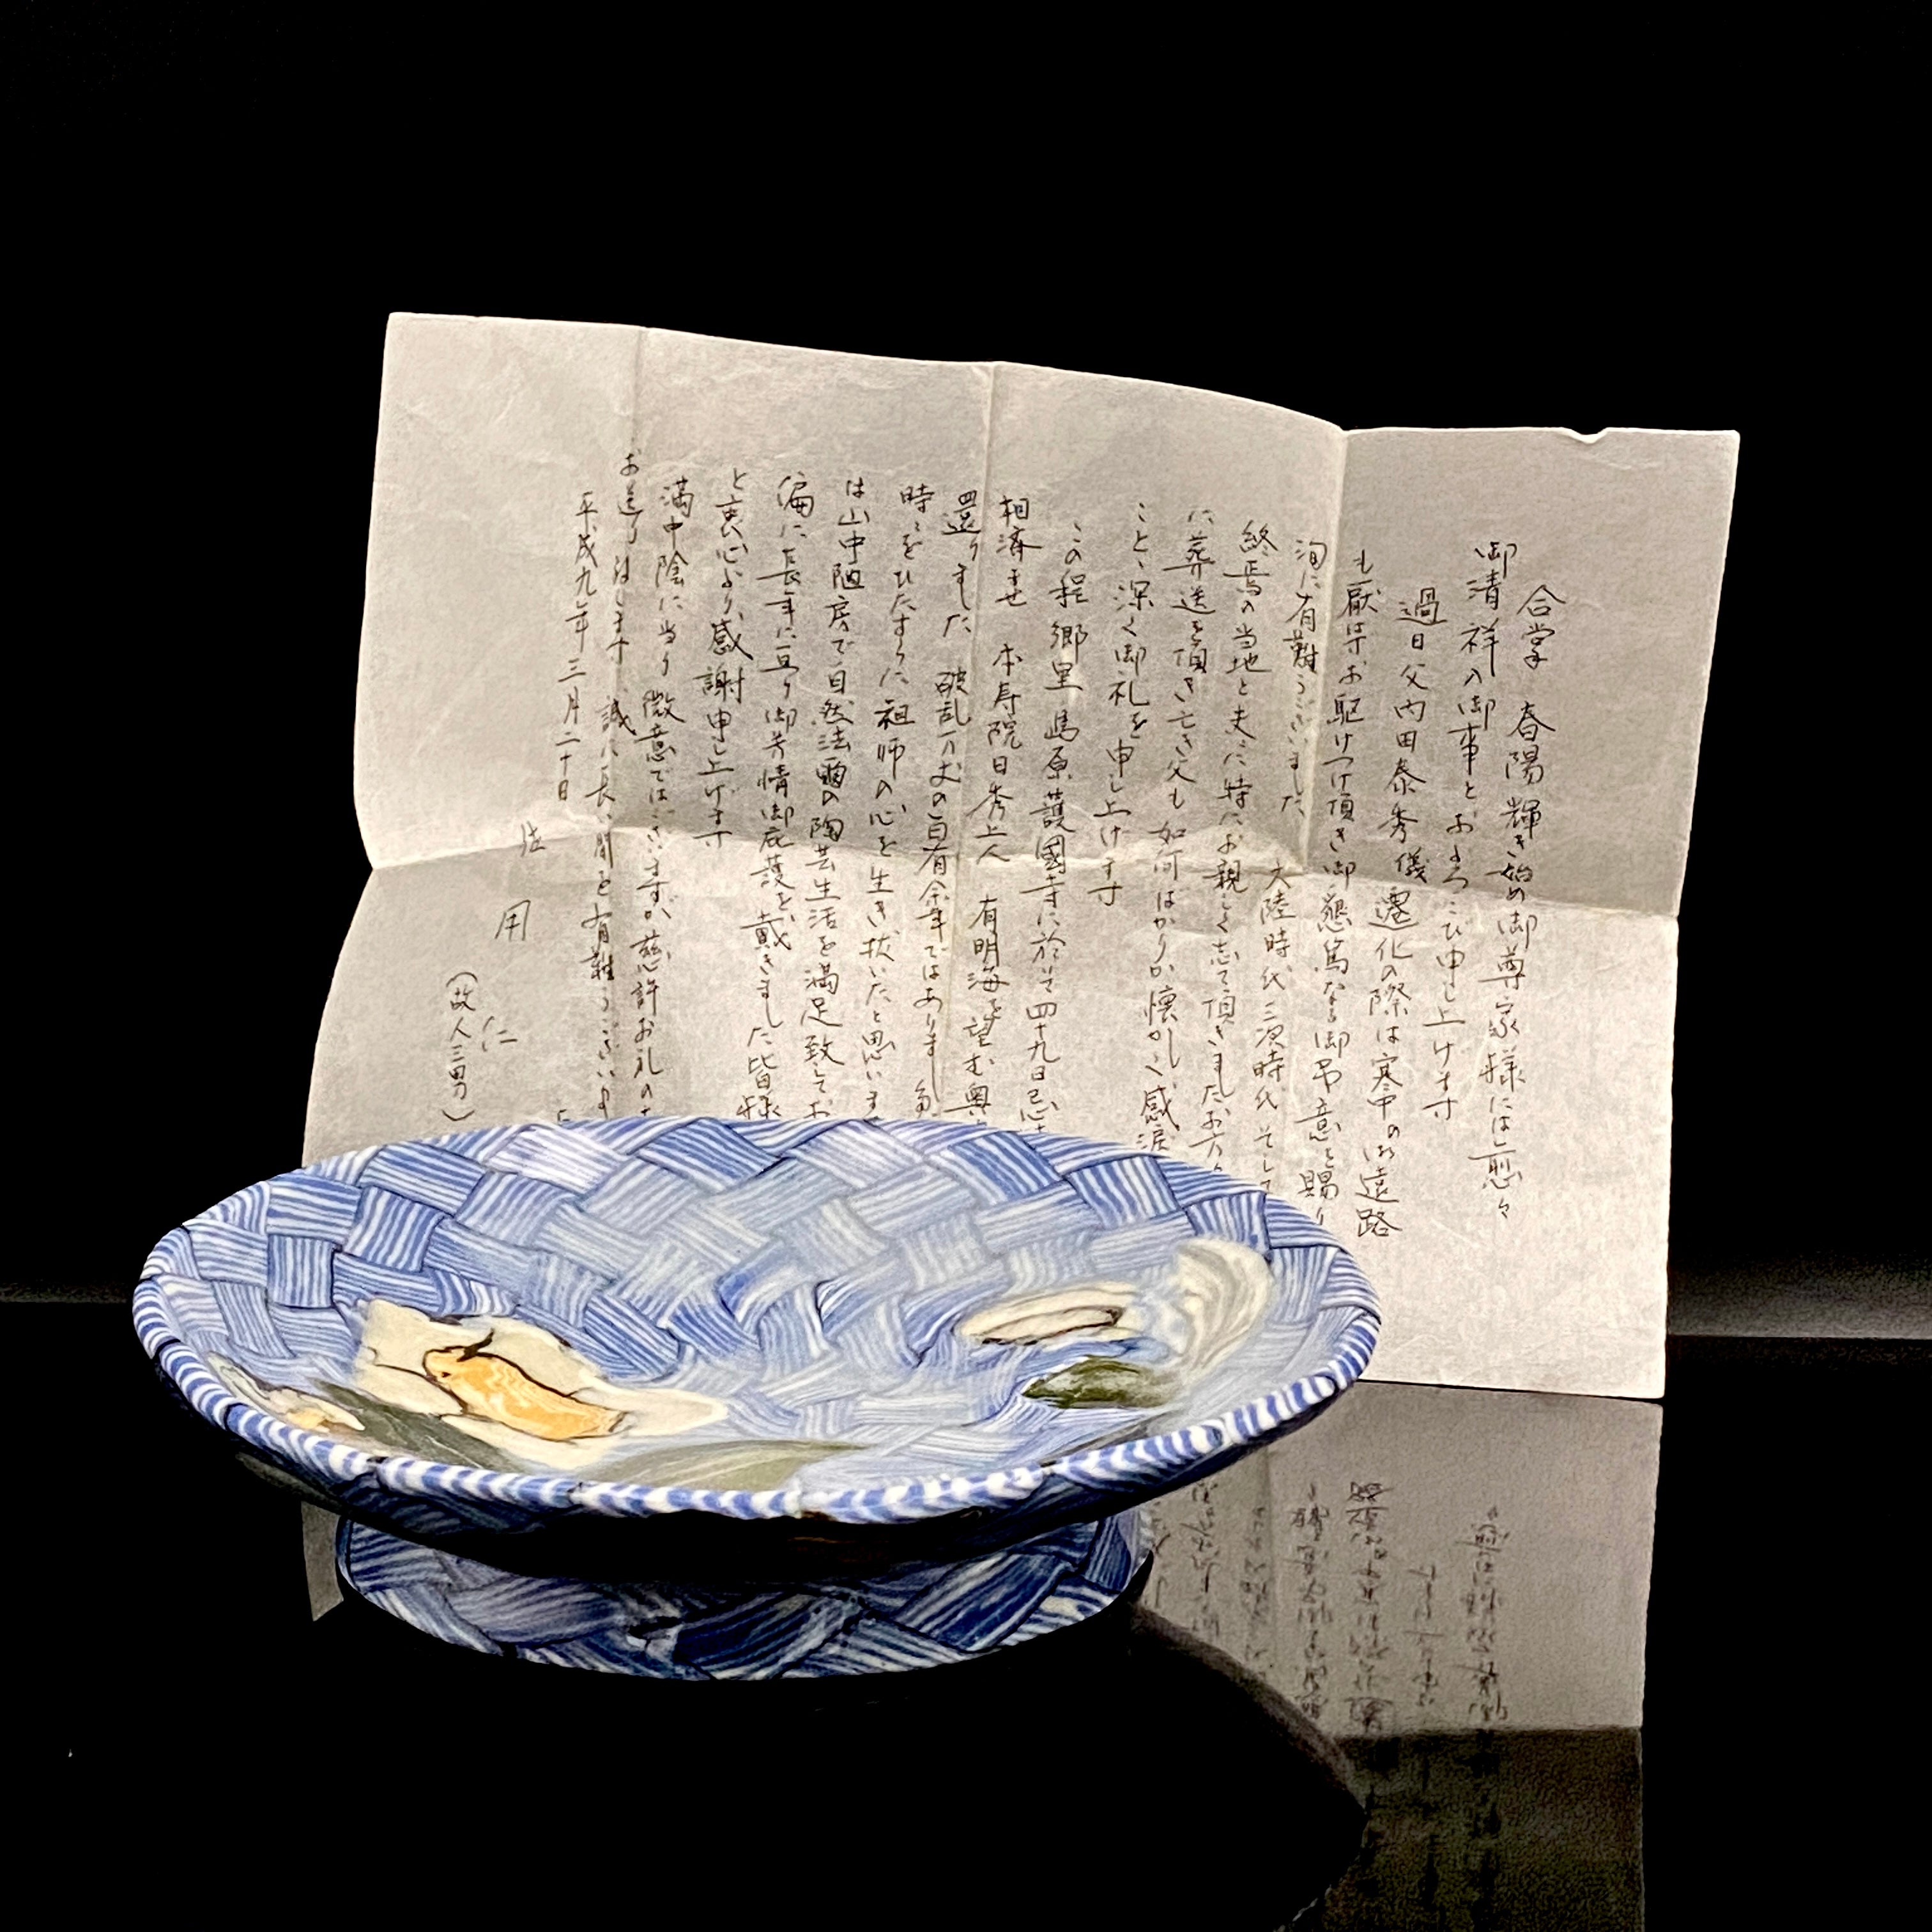 合掌 春陽輝き始め御尊家様には愈々
御清祥の御事とおよろこび申し上げます
過日父内田泰秀儀遷化の際は寒中の御遠路
も厭はずお駆けつけ頂き御懇篤なる御弔意を賜り
洵に有難うございました 大陸時代三次時代そして
終焉の当地と夫々に特にお親しく志て頂きましたお方々
に葬送を頂き亡き父も如何ばかりか懐しく感涙
こと、深く御礼を申し上げます
この程郷里島原護國寺に於て四十九日忌
相済ませ 本寿院日秀上人 有明海を望む奥
還りました 破乱万丈の百有余年ではありまし
時々をひたすらに祖師の心を生き抜いたと思います
は山中陋房で自然法爾の陶芸生活を満足致してお
偏に長年に亘り御芳情御庇護を戴きました皆様
と衷心より感謝申し上げます
満中陰に当り微意ではございますが慈許お礼の
お送り致します 誠に長い間を有難うございま
平成九年三月二十日
用 仁
(故人三男)